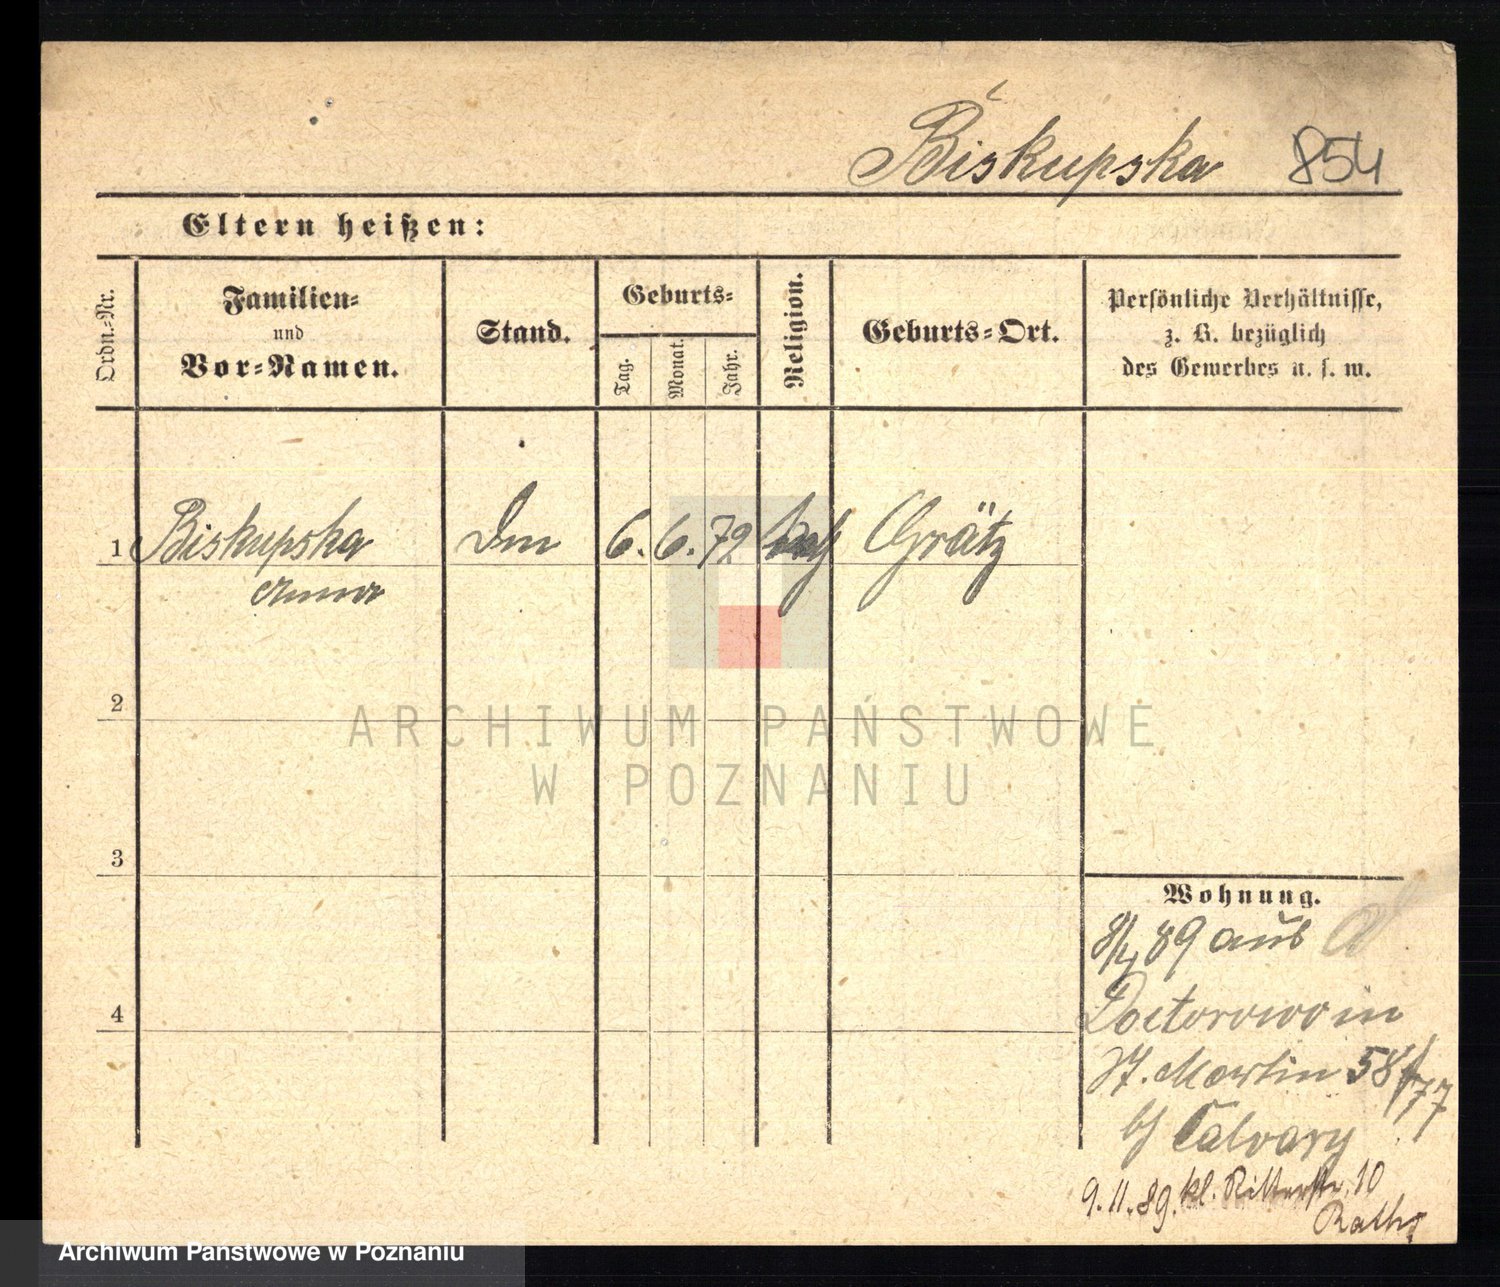 Biskupska 854
Eltern heißen:
Ordn.-Nr.
Familien-
und
Vor-Namen.
Stand.
Geburts-
Tag.
Monat.
Jahr.
Religion.
Geburts-Ort.
Persönliche Verhältnisse,
z. B. bezüglich
des Gewerbes u. s. w.
1 Biskupska 6. 6. 72 Grätz
Anna
2
3
4
ARCHIWUM PAŃSTWOWE
W POZNANIU
Wohnung.
89 aus
Doctorowo in
St. Martin 58/77
b/ Calvary
9.11.89. kl. Ritterstr. 10
Archiwum Państwowe w Poznaniu